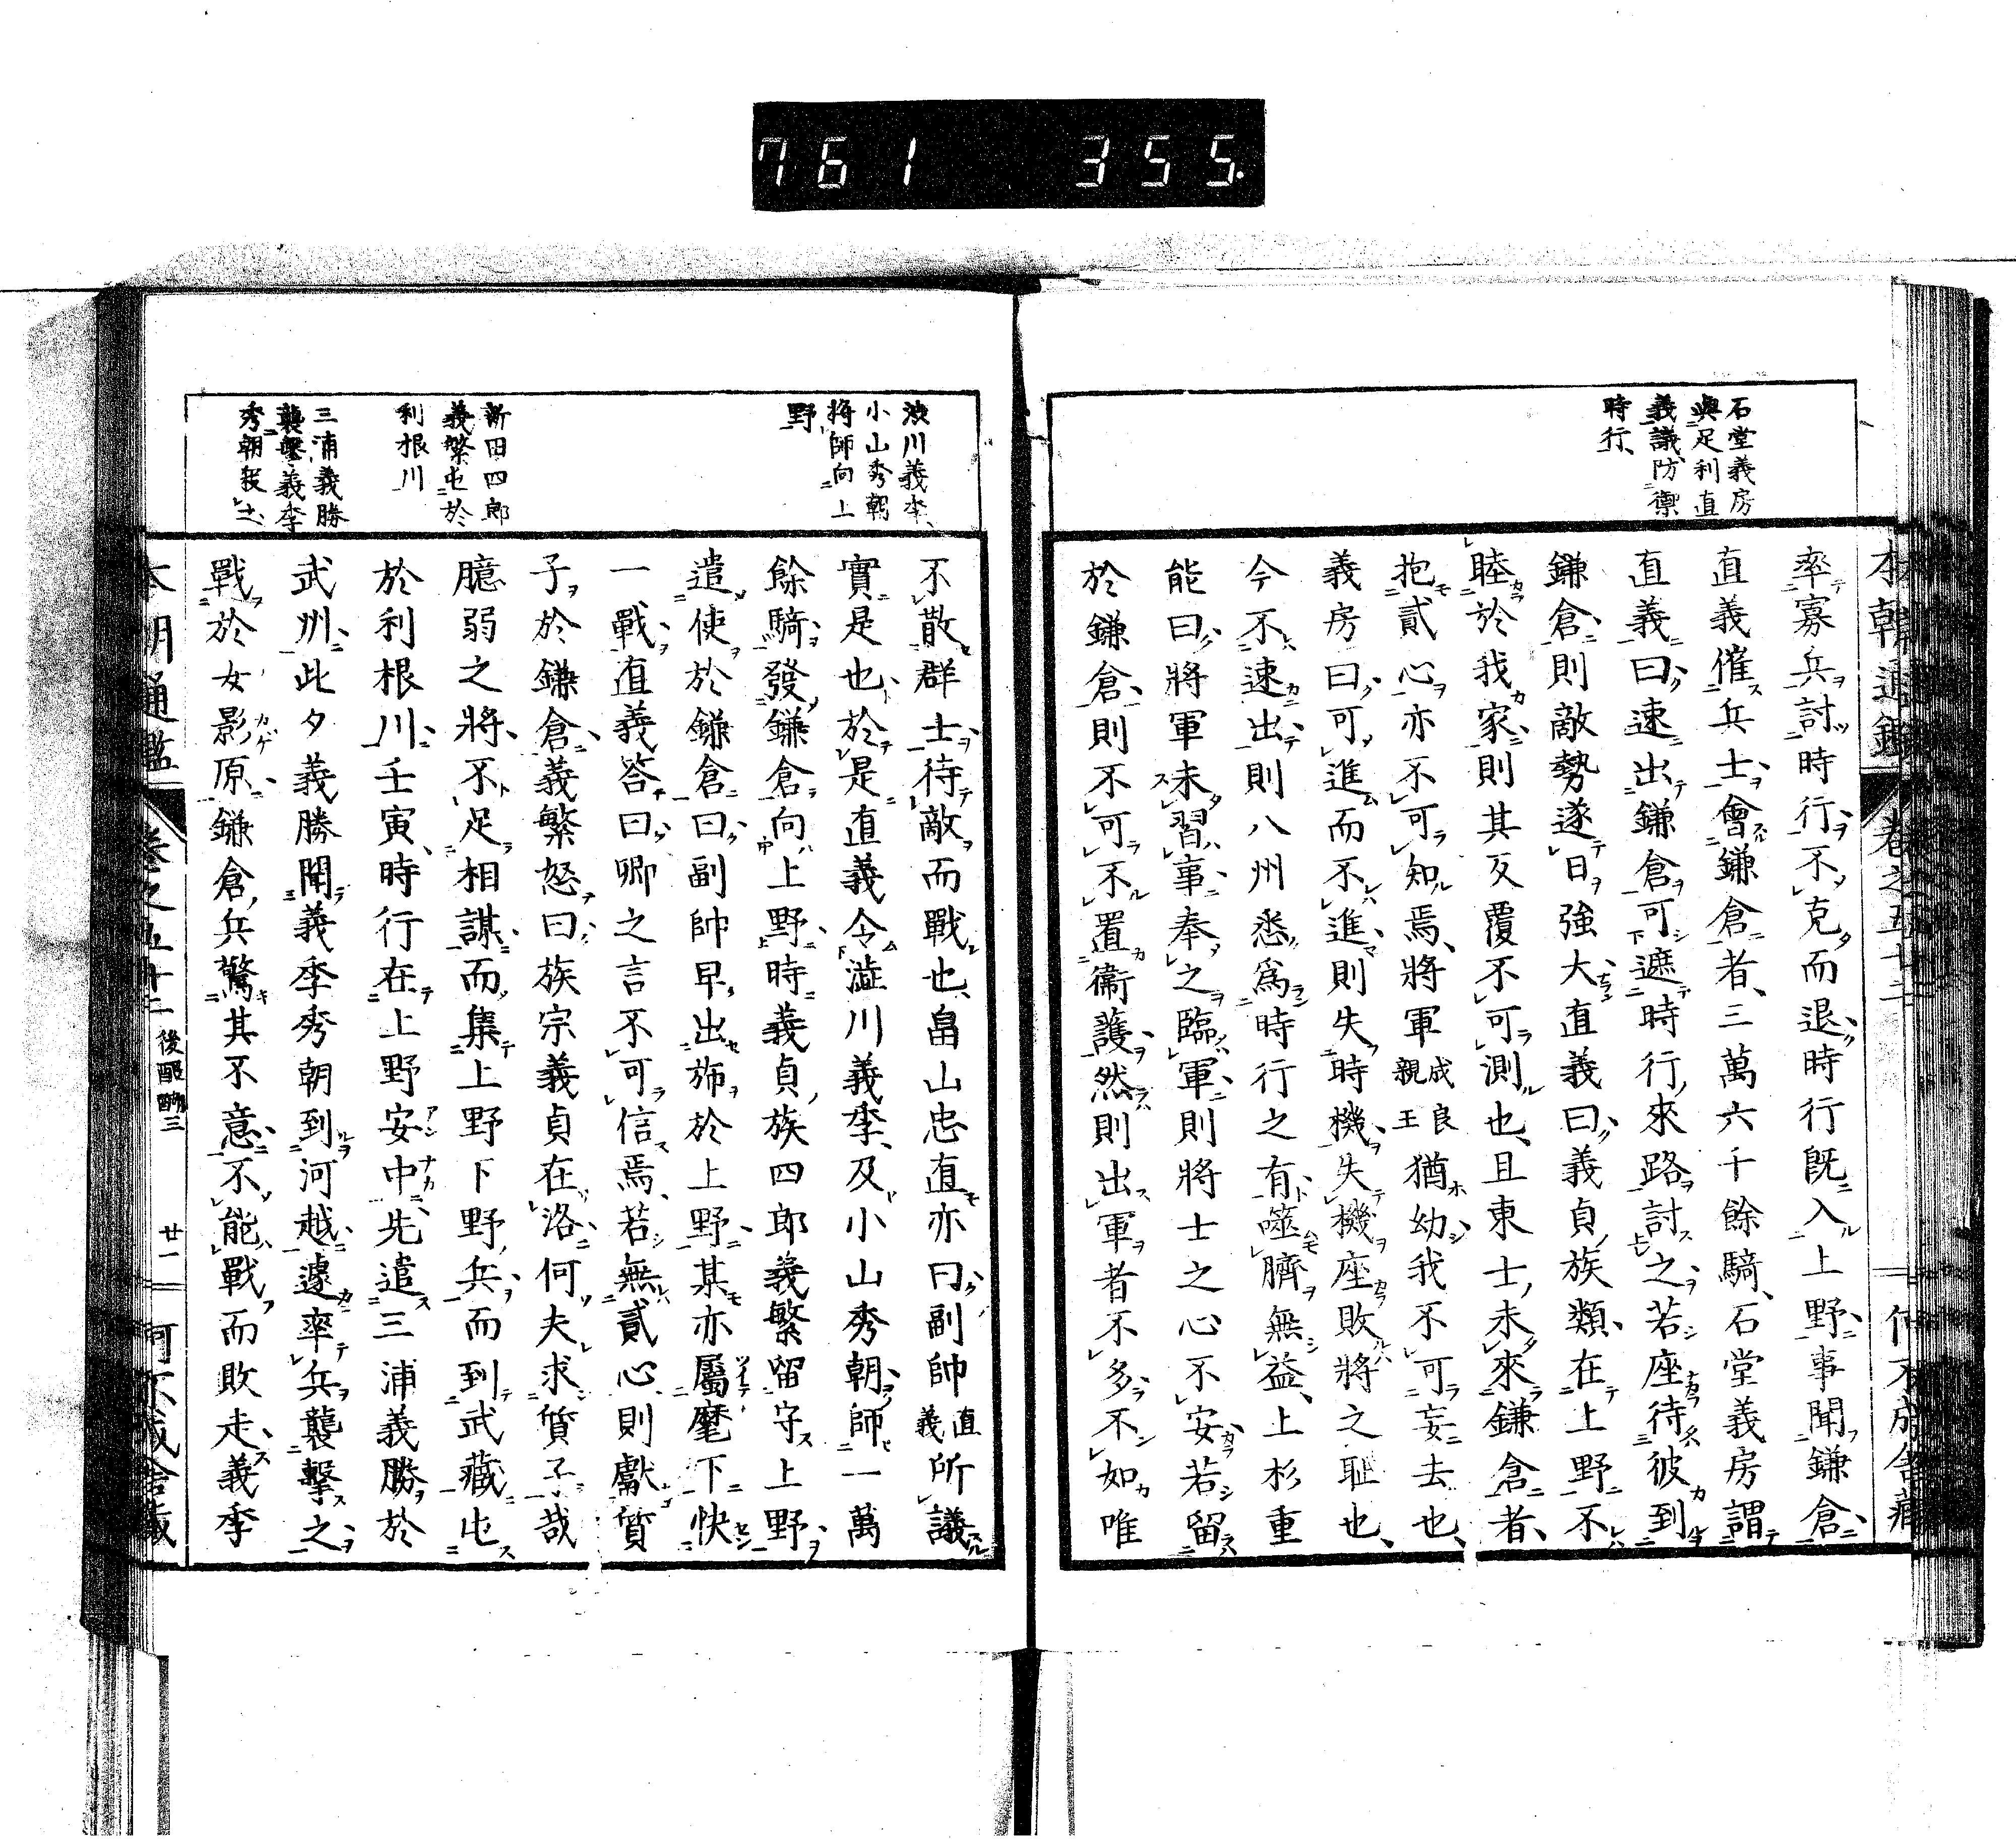 761 355.
石堂義房
與足利直
義議防禦
時行
率寡兵討時行不克而退時行既入上野事聞鎌倉
直義催兵士會鎌倉者三萬六千餘騎石堂義房謂
直義曰速出鎌倉可遮時行來路討之若座待彼到
鎌倉則敵勢逐日強大直義曰義貞族類在上野不
睦於我家則其反覆不可測也且東士未來鎌倉者
抱貳心亦不可知焉將軍成良親王猶幼我不可妄去也
義房曰可進而不進則失時機失機座敗將之耻也
今不速出則八州悉爲時行之有噬臍無益上杉重
能曰將軍未習事奉之臨軍則將士之心不安若留
於鎌倉則不可不置衞護然則出軍者不多不如唯
澁川義季
小山秀朝
將師向上
野
新田四郎
義繁屯於
利根川
三浦義勝
襲擊義季
秀朝
不散群士待敵而戰也畠山忠直亦曰副帥直義所議
實是也於是直義令澁川義季及小山秀朝師一萬
餘騎發鎌倉向上野時義貞族四郎義繁留守上野
遣使於鎌倉曰副帥早出斾於上野某亦屬麾下快
一戰直義答曰卿之言不可信焉若無貳心則獻質
子於鎌倉義繁怒曰族宗義貞在洛何夫求質子哉
臆弱之將不足相謀而集上野下野兵而到武藏屯
於利根川壬寅時行在上野安中先遣三浦義勝於
武州此夕義勝聞義季秀朝到河越遽率兵襲擊之
戰於女影原鎌倉兵驚其不意不能戰而敗走義季
本朝通鑑 卷之五十二 後醍醐三 廿一